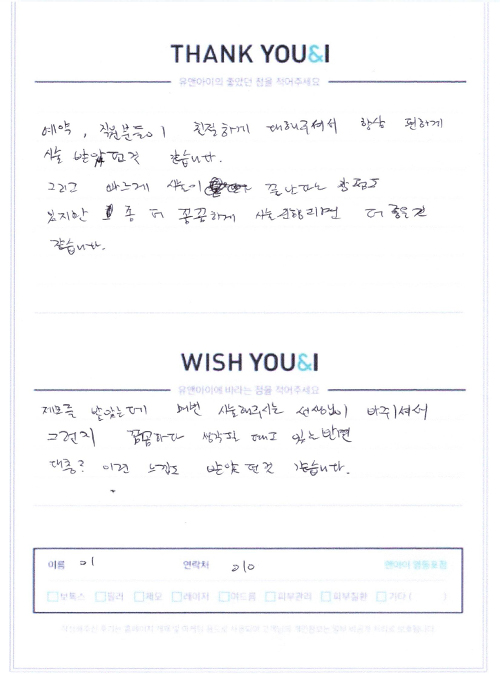 THANK YOU&I
유앤아이의 좋았던 점을 적어주세요
예약, 직원분들이 친절하게 대해주셔서 항상 편하게
시술 받았던것 같습니다.
그리고 빠르게 시술이 끝난다는 장점도
있지만 좀 더 꼼꼼하게 시술 진행되면 더 좋을것
같습니다.
WISH YOU&I
유앤아이에 바라는 점을 적어주세요
제모를 받았는데 매번 시술해주시는 선생님이 바뀌셔서
그런지 꼼꼼하다 생각될 때도 있는 반면
대충? 이런 느낌도 받았던것 같습니다.
이름 이 연락처 010 앤아이 영등포점
보톡스 필러 제모 레이저 여드름 피부관리 피부질환 기타 ( )